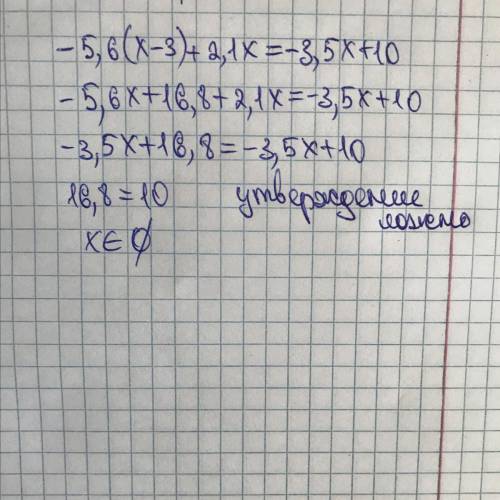 -5,6(x-3)+2,1x=-3,5x+10
-5,6x+16,8+2,1x=-3,5x+10
-3,5x+16,8=-3,5x+10
16,8=10 утверждение
ложно
x∈∅